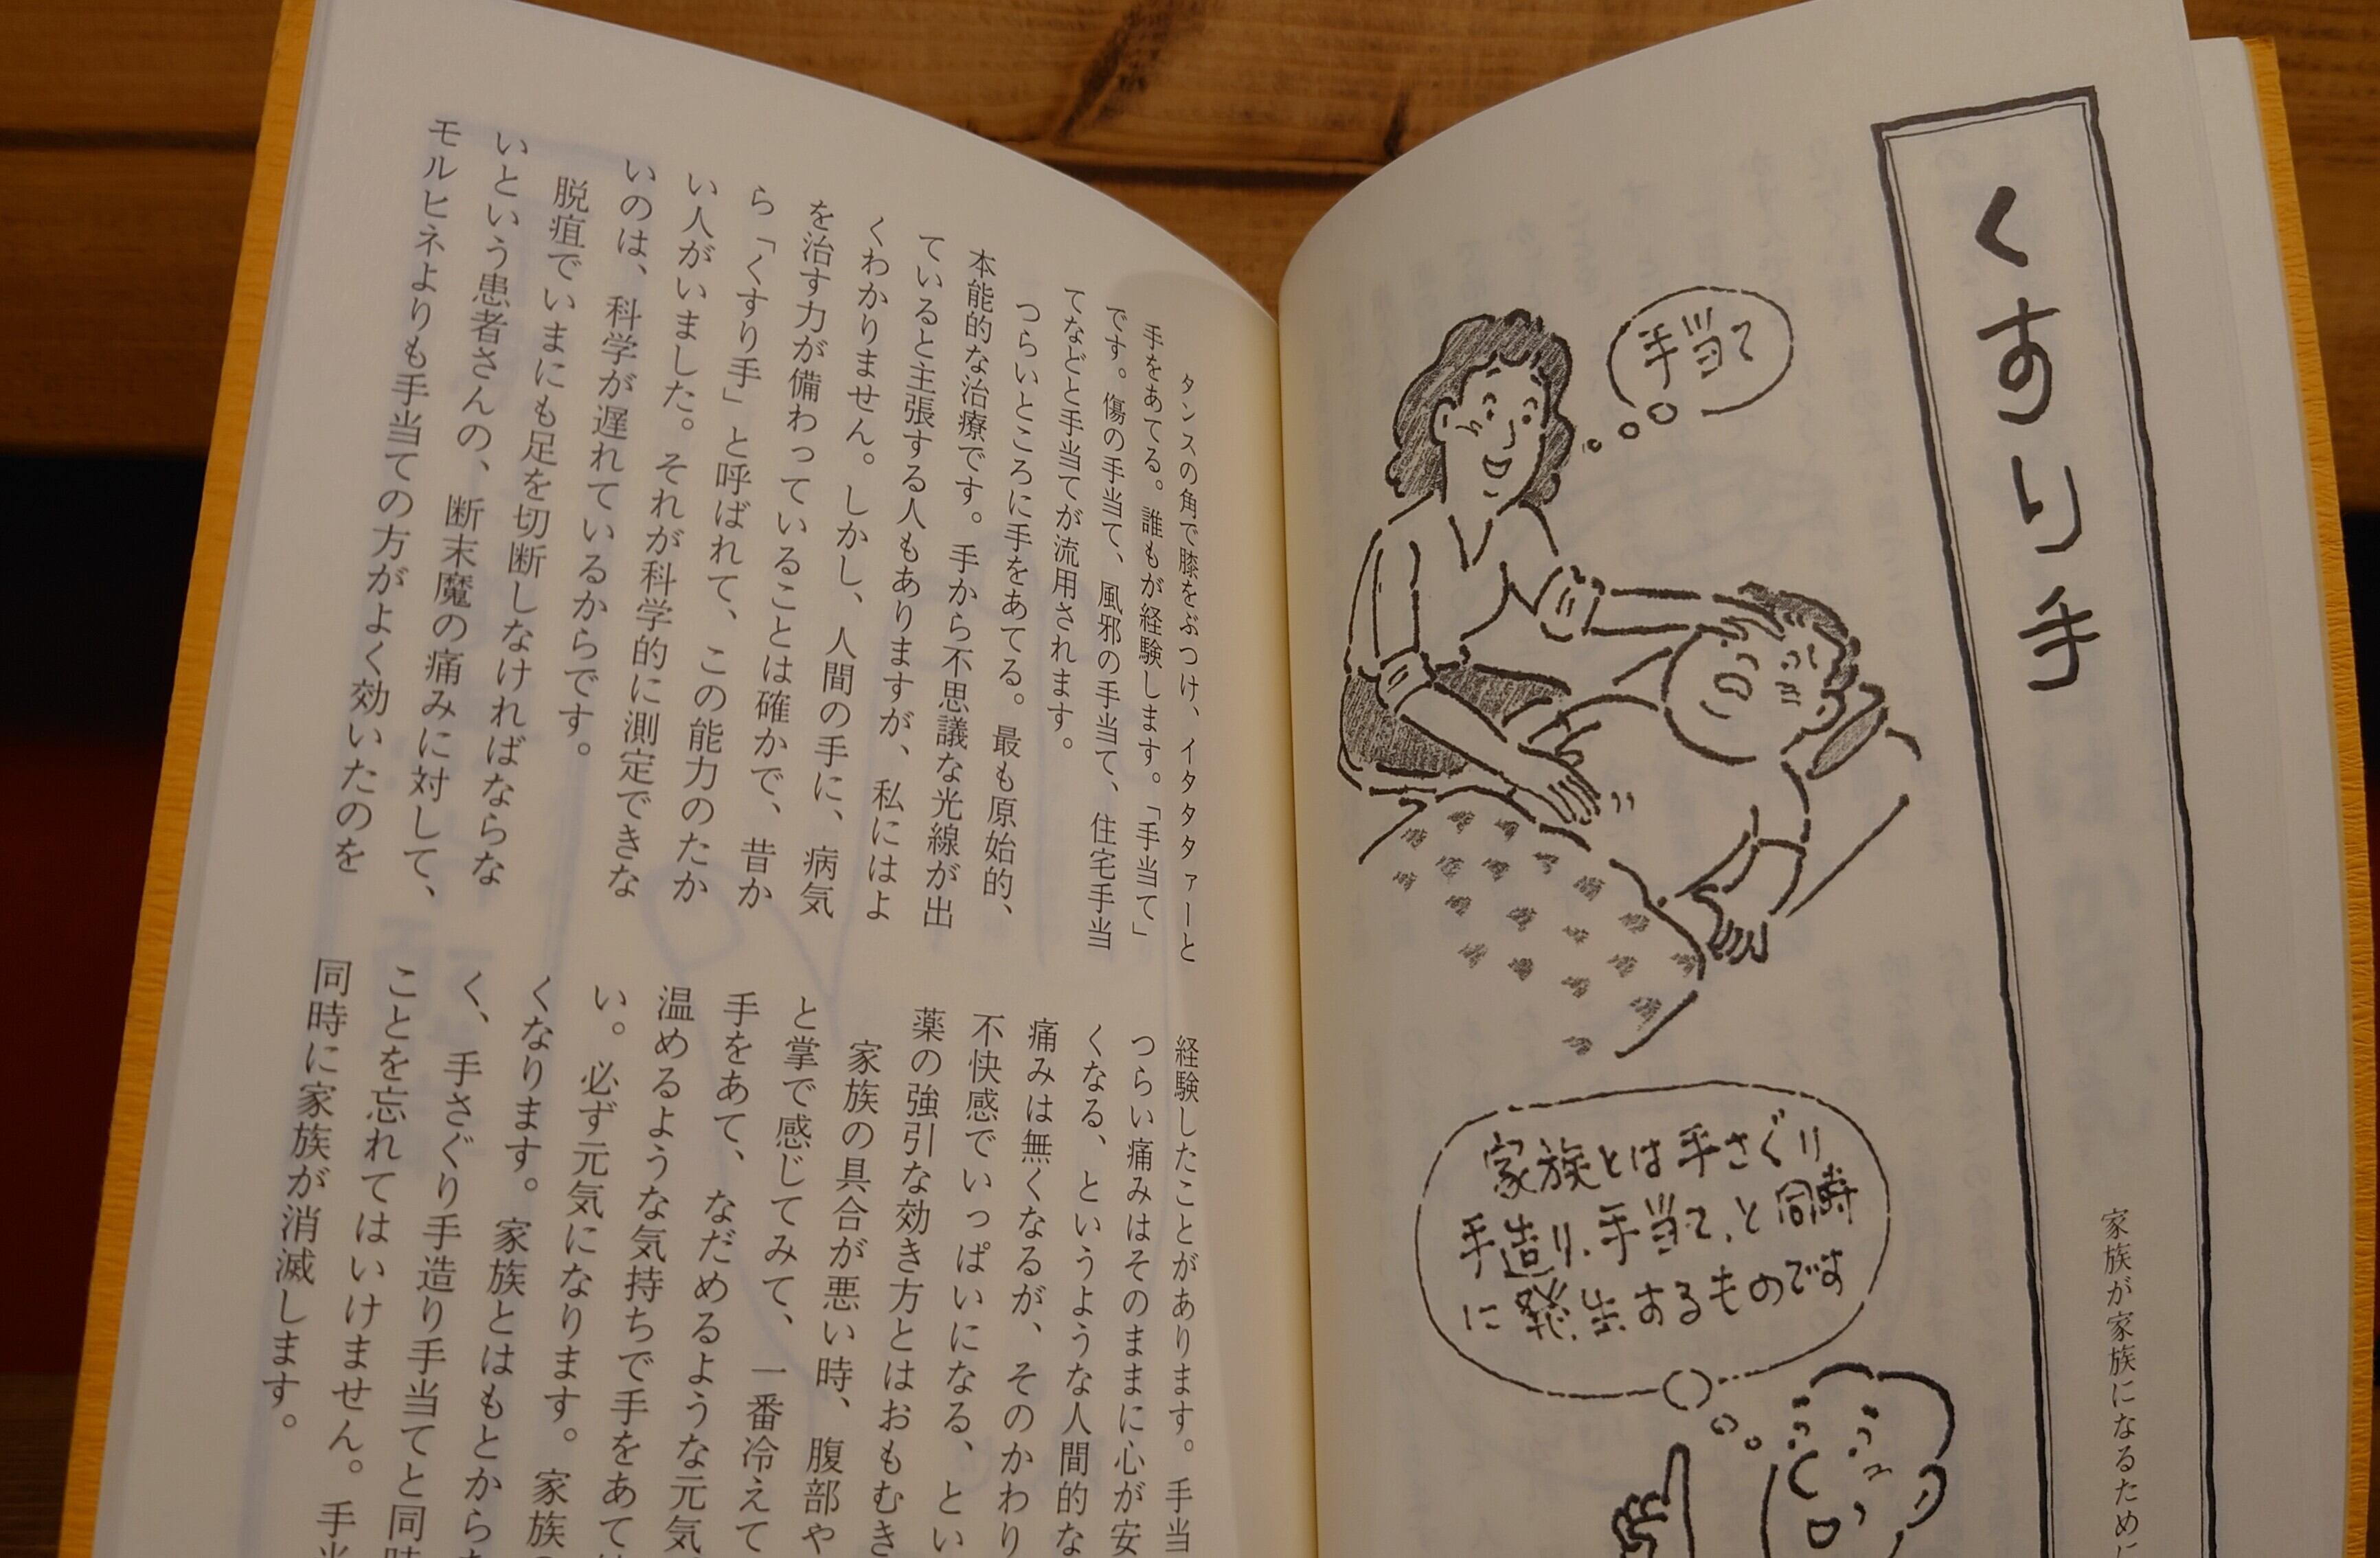 くすり手
家族が家族になるために
手当て
家族とは手さぐり
手造り、手当て、と同時
に発生するものです
タンスの角で膝をぶつけ、イタタタァーと
手をあてる。誰もが経験します。「手当て」
です。傷の手当て、風邪の手当て、住宅手当
てなどと手当てが流用されます。
つらいところに手をあてる。最も原始的、
本能的な治療です。手から不思議な光線が出
ていると主張する人もありますが、私にはよ
くわかりません。しかし、人間の手に、病気
を治す力が備わっていることは確かで、昔か
ら「くすり手」と呼ばれて、この能力のたか
い人がいました。それが科学的に測定できな
いのは、科学が遅れているからです。
脱疽でいまにも足を切断しなければならな
いという患者さんの、断末魔の痛みに対して、
モルヒネよりも手当ての方がよく効いたのを
経験したことがあります。手当
つらい痛みはそのままに心が安
くなる、というような人間的な
痛みは無くなるが、そのかわり
不快感でいっぱいになる、とい
薬の強引な効き方とはおもむき
家族の具合が悪い時、腹部や
と掌で感じてみて、一番冷えて
手をあて、なだめるような元気
温めるような気持ちで手をあて
い。必ず元気になります。家族
くなります。家族とはもとから
く、手さぐり手造り手当てと同時
ことを忘れてはいけません。手
同時に家族が消滅します。